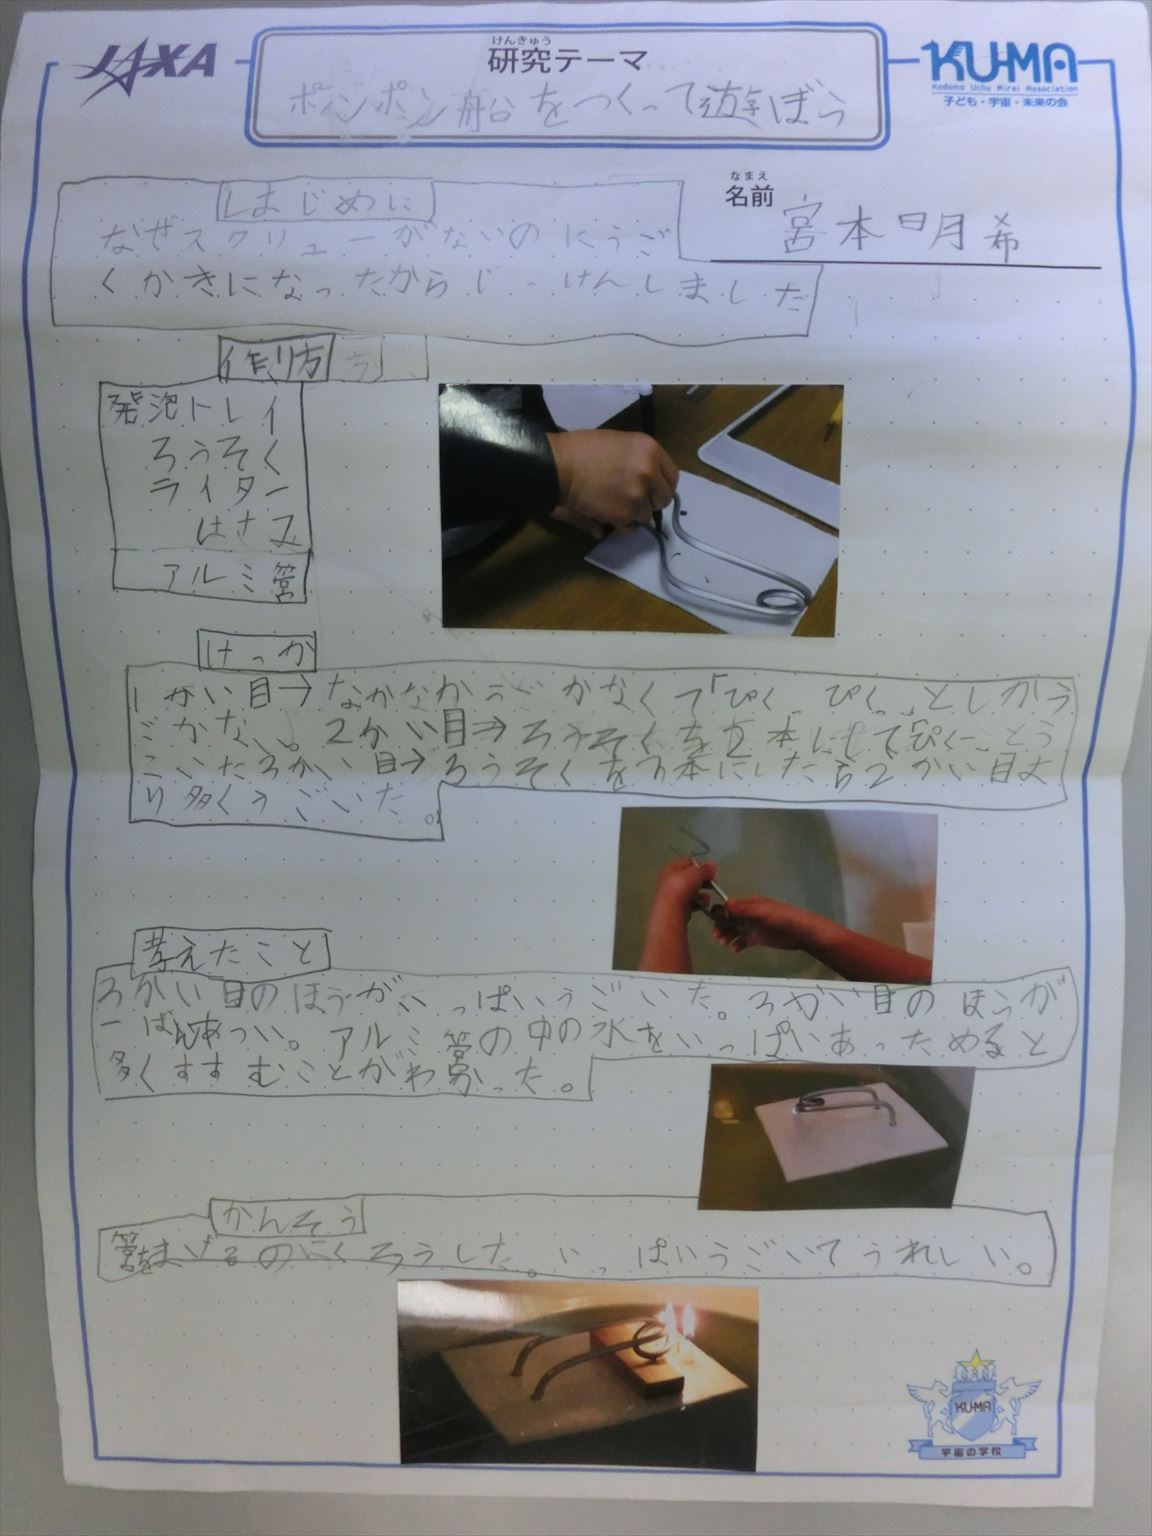 JAXA
けんきゅう
研究テーマ
KU-MA
Kodomo Uchu Mirai Association
子ども・宇宙・未来の会
ポンポン船をつくって遊ぼう
なまえ
名前
宮本明希
はじめに
なぜスクリューがないのにうご
くかきになったからじっけんしました
作り方
発泡トレイ
ろうそく
ライター
はさみ
アルミ管
けっか
1かい目→なかなかうごかなくて「ぴくっぴくっ」としかう
ごかない。2かい目→ろうそくを2本にして「ぴくー」とう
ごいた3かい目→ろうそくを3本にしたら2かい目よ
り多くうごいた。
考えたこと
3かい目のほうがいっぱいうごいた。3かい目のほうが
一ばんあつい。アルミ管の中の水をいっぱいあっためると
多くすすむことがわかった。
かんそう
管をまげるのにくろうした。いっぱいうごいてうれしい。
KU-MA
宇宙の学校